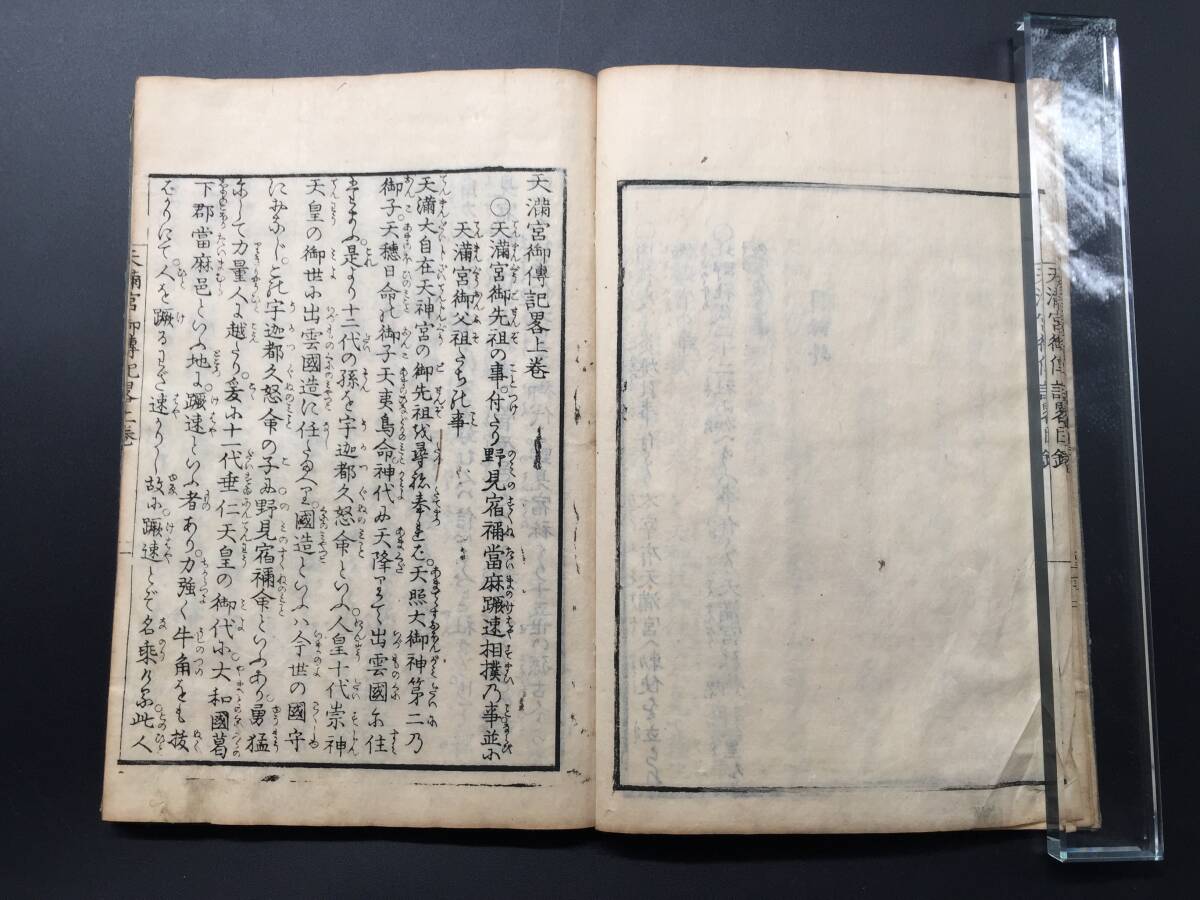 天滿宮御傳記畧目録
天滿宮御傳記畧上巻
〇天滿宮御先祖の事。付たり野見宿禰當麻蹶速相撲乃事並に
天滿宮御父祖たちの事
天滿大自在天神宮の御先祖を尋ね奉るに。天照大御神第二乃
御子。天穂日命の御子天夷鳥命神代に天降りて出雲國に住
たまふ。是より十二代の孫を宇迦都久怒命といふ人皇十代崇神
天皇の御世に出雲國造に任たまへり。國造といふハ今世の國守
にみなじ。この宇迦都久怒命の子に野見宿禰命といふあり勇猛
にして力量人に越たり。爰に十一代垂仁天皇の御代に大和國葛
下郡當麻邑といふ地に。蹶速といふ者あり。力強く牛角をも抜
ばかりにて。人を蹶るにまた速かりし故に蹶速とぞ名乗ける。此人
天滿宮御傳記畧上巻
一